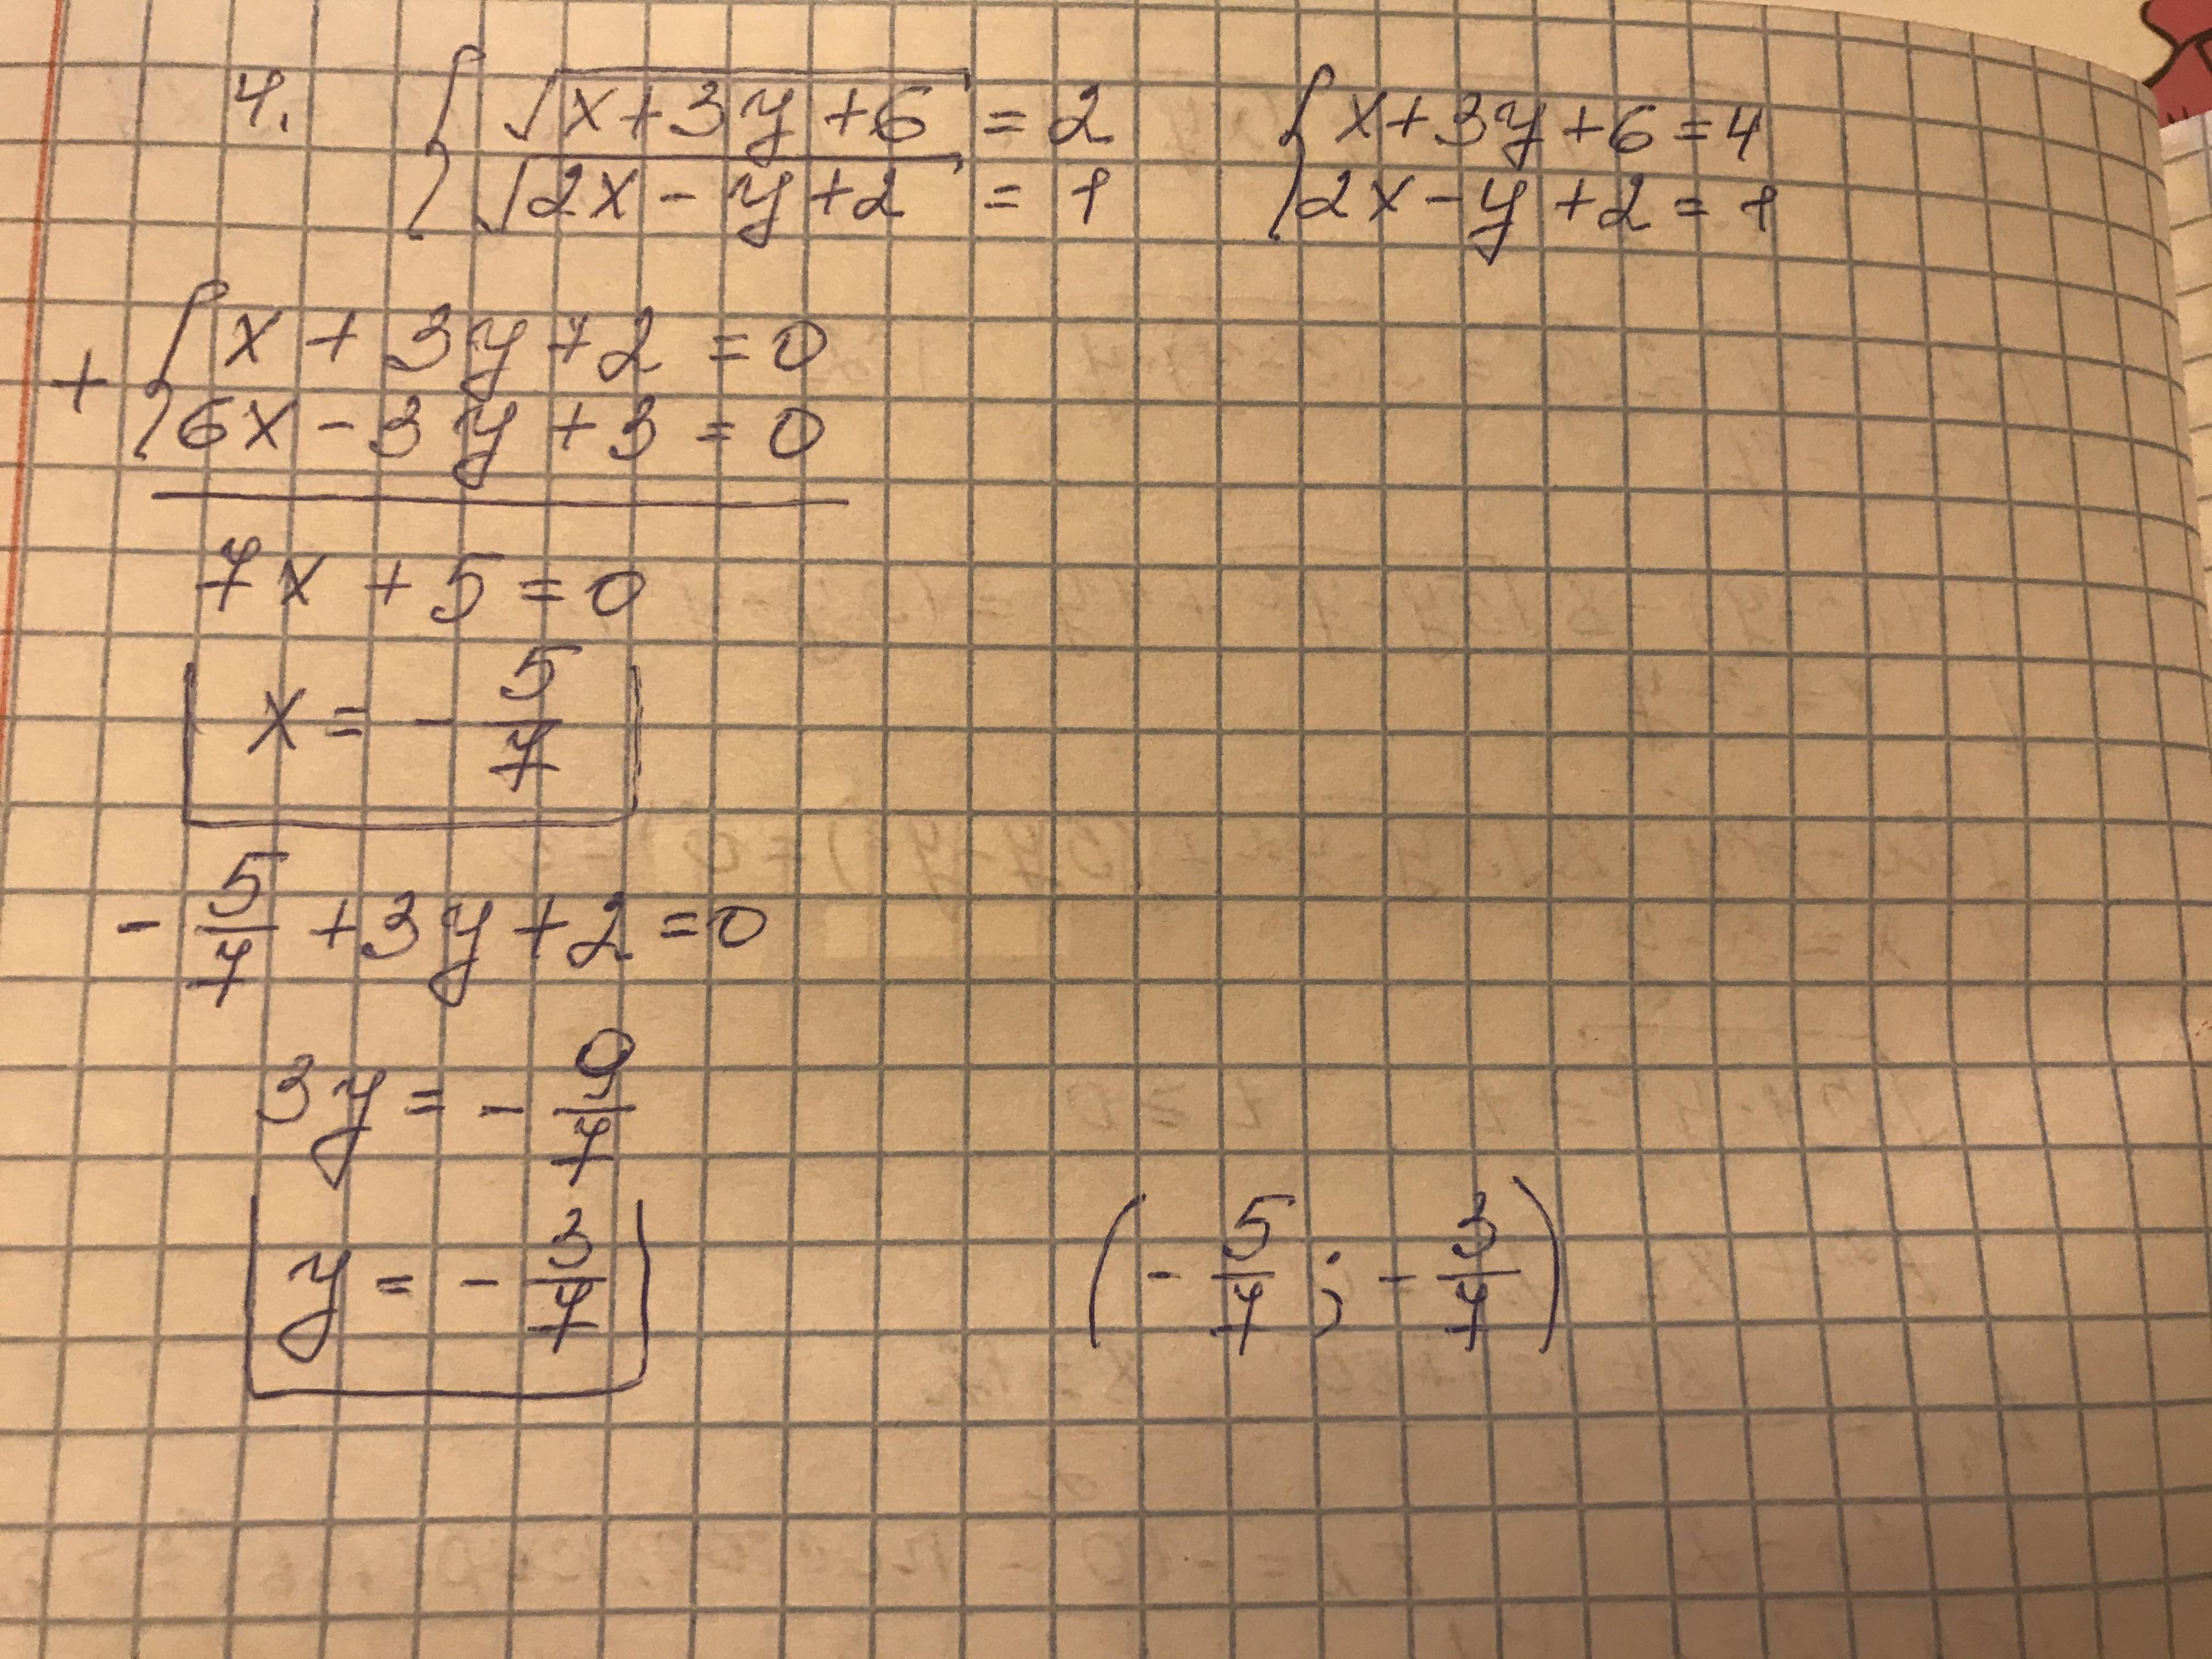 4. { √(x+3y+6) = 2 { x+3y+6=4
{ √(2x-y+2) = 1 { 2x-y+2=1
+ { x+3y+2=0
{ 6x-3y+3=0
7x+5=0
x=-5/7
-5/7+3y+2=0
3y=-9/7
y=-3/7 (-5/7;-3/7)